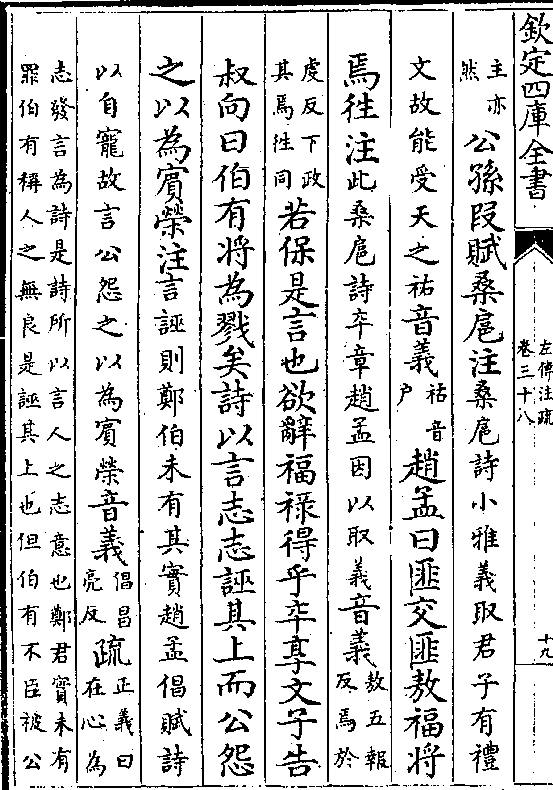 欽定四庫全書
左傳注疏
卷三十八
十九
主亦
然
公孫段賦桑扈注桑扈詩小雅義取君子有禮
文故能受天之祜音義
祜音
户
趙孟曰匪交匪敖福將
焉徃注此桑扈詩卒章趙孟因以取義音義
敖五報
反焉於
虔反下政
其焉徃同
若保是言也欲辭福禄得乎卒享文子告
叔向曰伯有將為戮矣詩以言志志誣其上而公怨
之以為賓榮注言誣則鄭伯未有其實趙孟倡賦詩
以自寵故言公怨之以為賓榮音義
倡昌
亮反
疏
正義曰
在心為
志發言為詩是詩所以言人之志意也鄭君實未有
罪伯有稱人之無良是誣其上也但伯有不臣被公